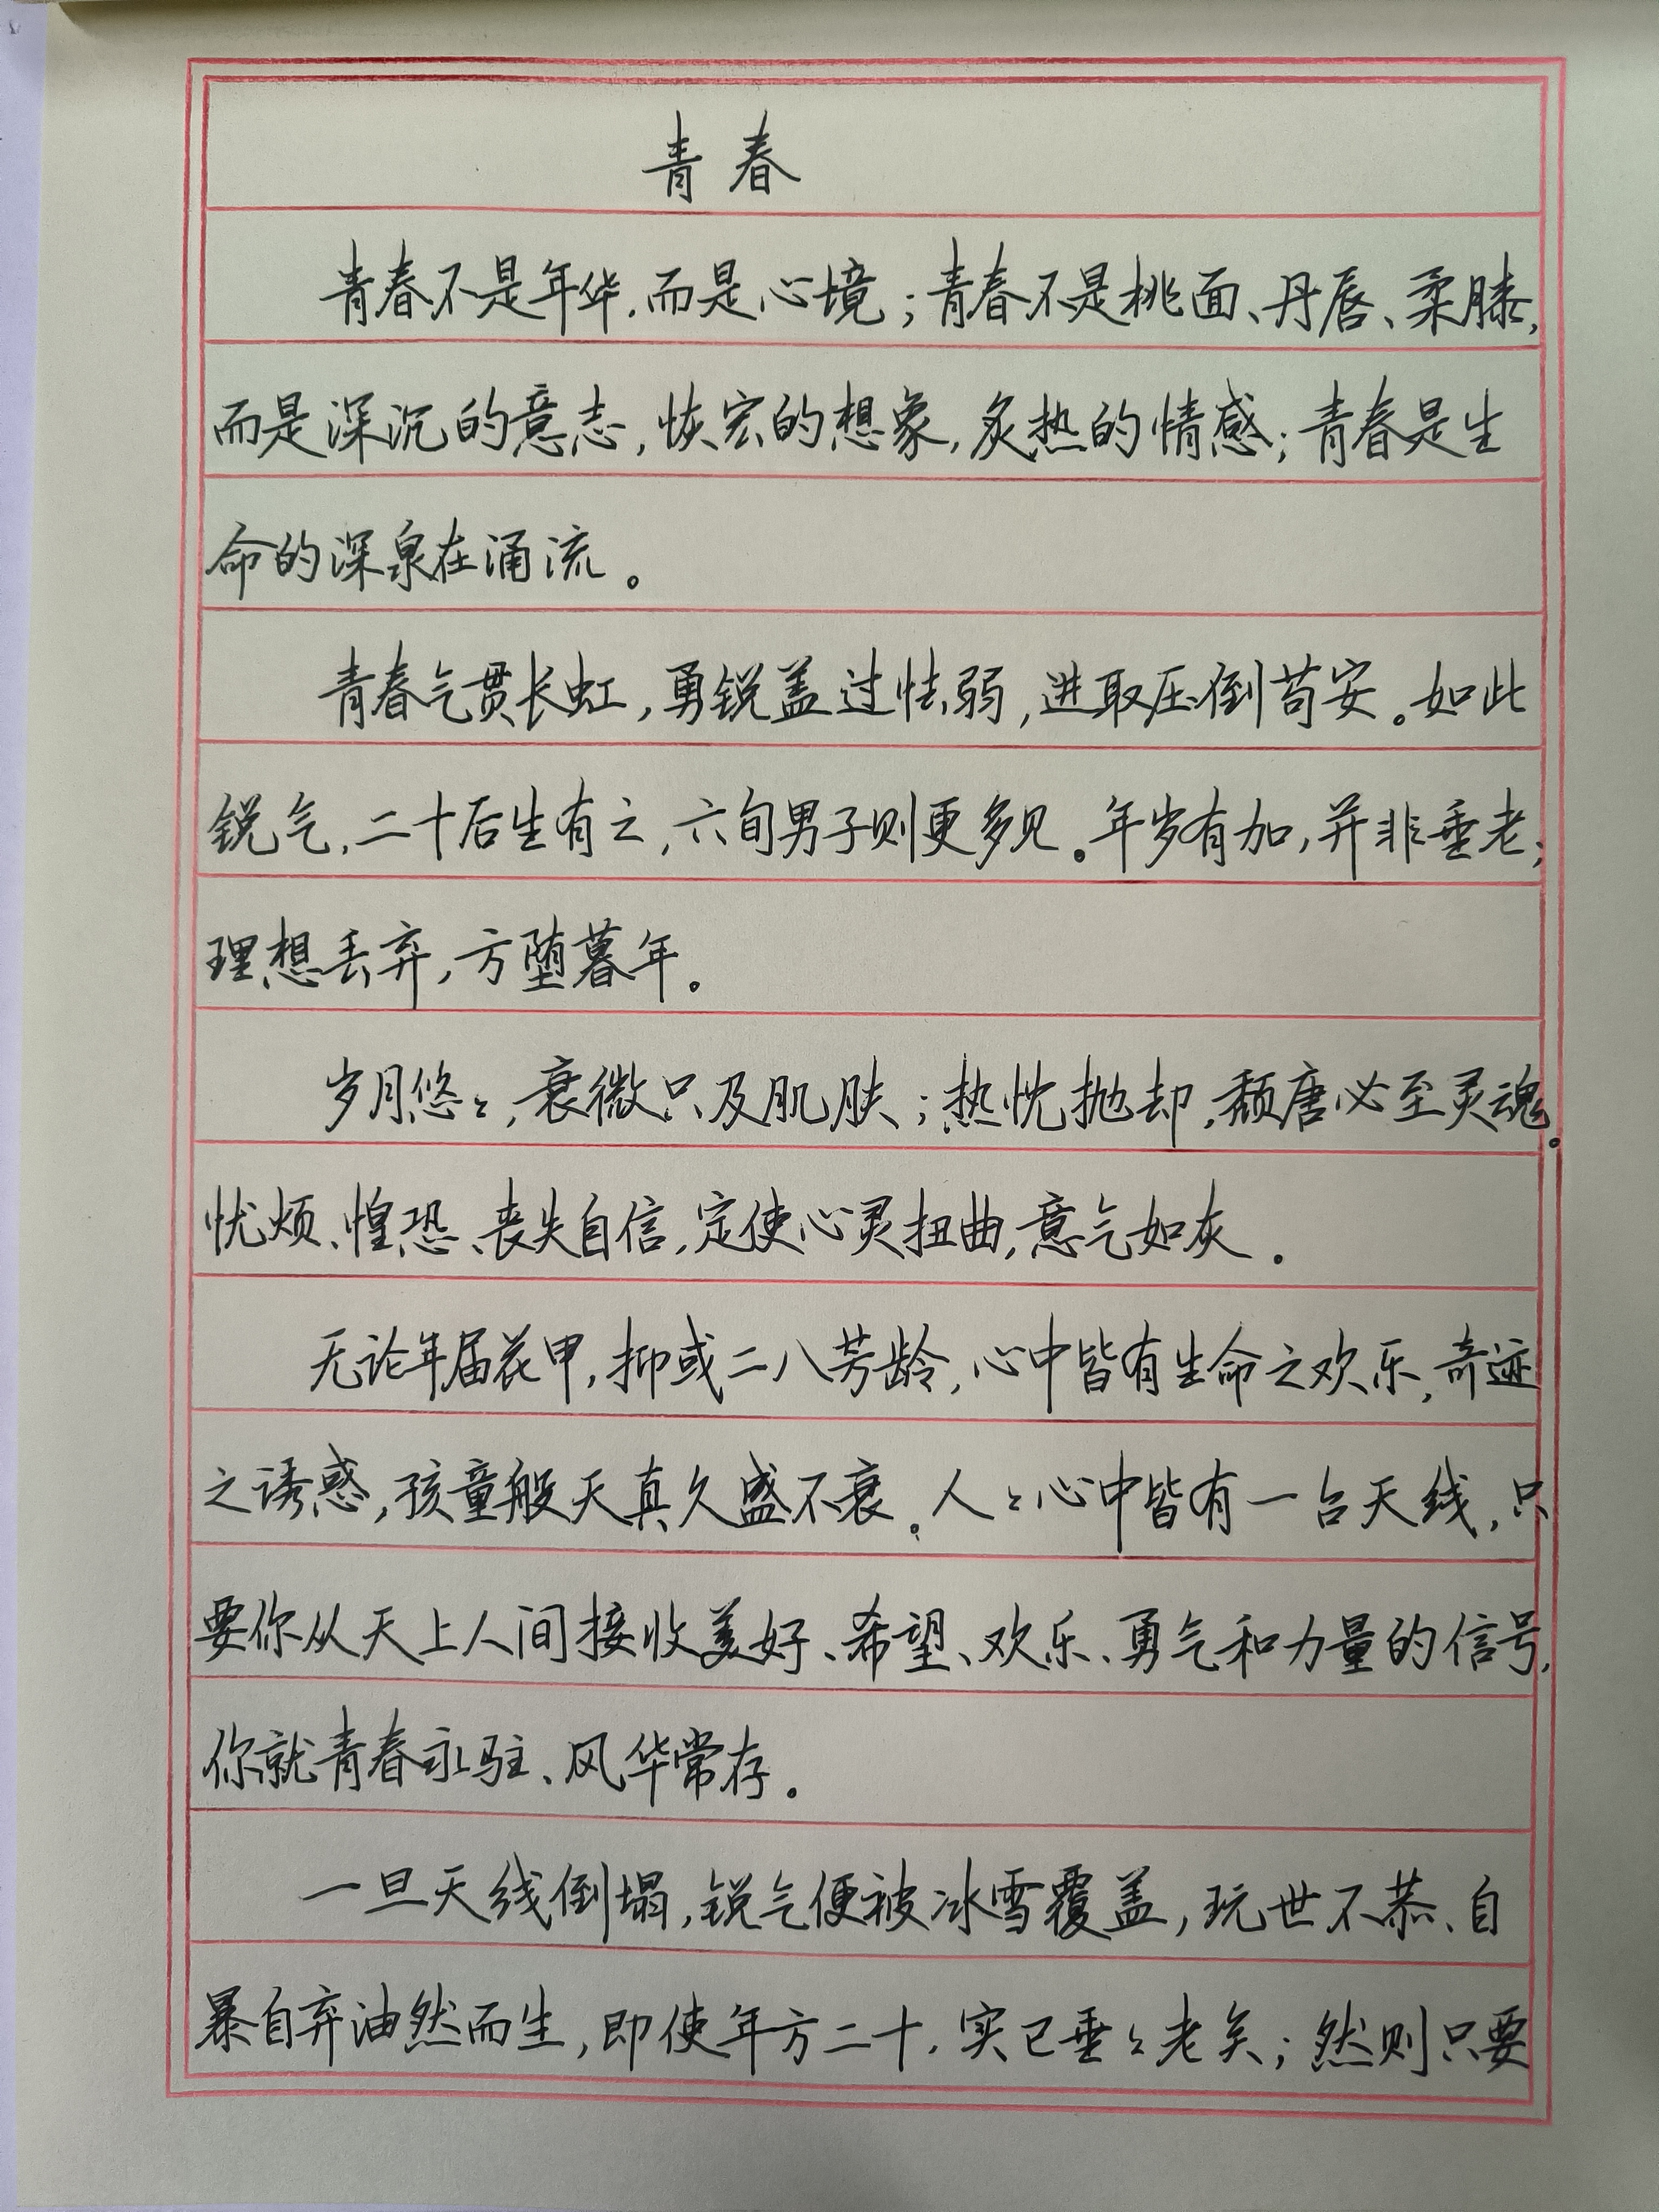 青春
青春不是年华，而是心境；青春不是桃面、丹唇、柔膝，
而是深沉的意志，恢宏的想象，炙热的情感；青春是生
命的深泉在涌流。
青春气贯长虹，勇锐盖过怯弱，进取压倒苟安。如此
锐气，二十后生有之，六旬男子则更多见。年岁有加，并非垂老；
理想丢弃，方堕暮年。
岁月悠々，衰微只及肌肤；热忱抛却，颓唐必至灵魂。
忧烦、惶恐、丧失自信，定使心灵扭曲，意气如灰。
无论年届花甲，抑或二八芳龄，心中皆有生命之欢乐，奇迹
之诱惑，孩童般天真久盛不衰。人々心中皆有一台天线，只
要你从天上人间接收美好、希望、欢乐、勇气和力量的信号，
你就青春永驻、风华常存。
一旦天线倒塌，锐气便被冰雪覆盖，玩世不恭、自
暴自弃油然而生，即使年方二十，实已垂々老矣；然则只要